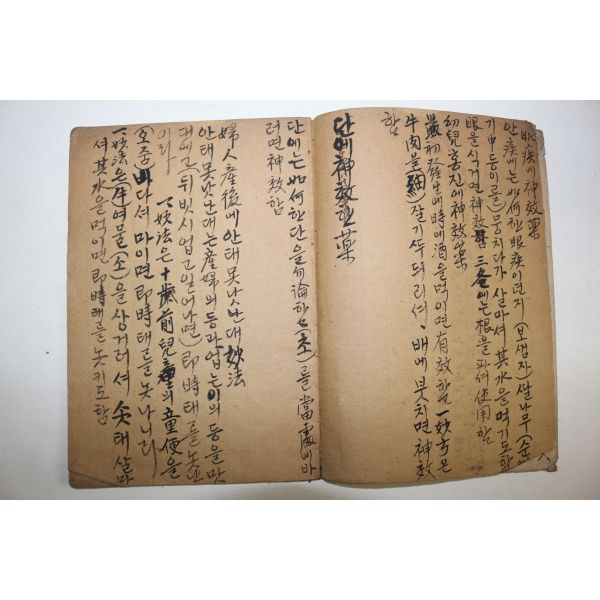 眼疾에 神效藥
안疾에는 如何한 眼疾이던지 (보섭자) 쌀나무 (순
기中 둥이를) 뭉치다가 살마셔 其水을 먹기도 함
眼을 식거면 神效함 三冬에는 根을 파셔 使用함
幼兒 홍진에 神效藥
最初 發生에 時에 酒을 먹이면 有效함 一妙方은
牛肉을 (細) 잘기 삭드리셔 、 배에 붓치면 神效
함
단에 神效한 藥
단에는 如何한 단을 勿論하고 (초)를 當處에 바
러면 神效함
婦人 産後에 안태 못나스난대 妙法
안태 못낫난대는 産婦의 등과 업는이의 등을 맛
대에고 뒤빗시 업고 일어나면 卽時 태를 놋난
이라
一妙法은 十歲前 兒童의 童便을
(오줌) 바다셔 마이면 卽時 태를 놋나니라
一妙法은 牛여물 (소)을 상거러셔 솟태 살마
셔 其水을 먹이면 卽時 태를 놋키도 함